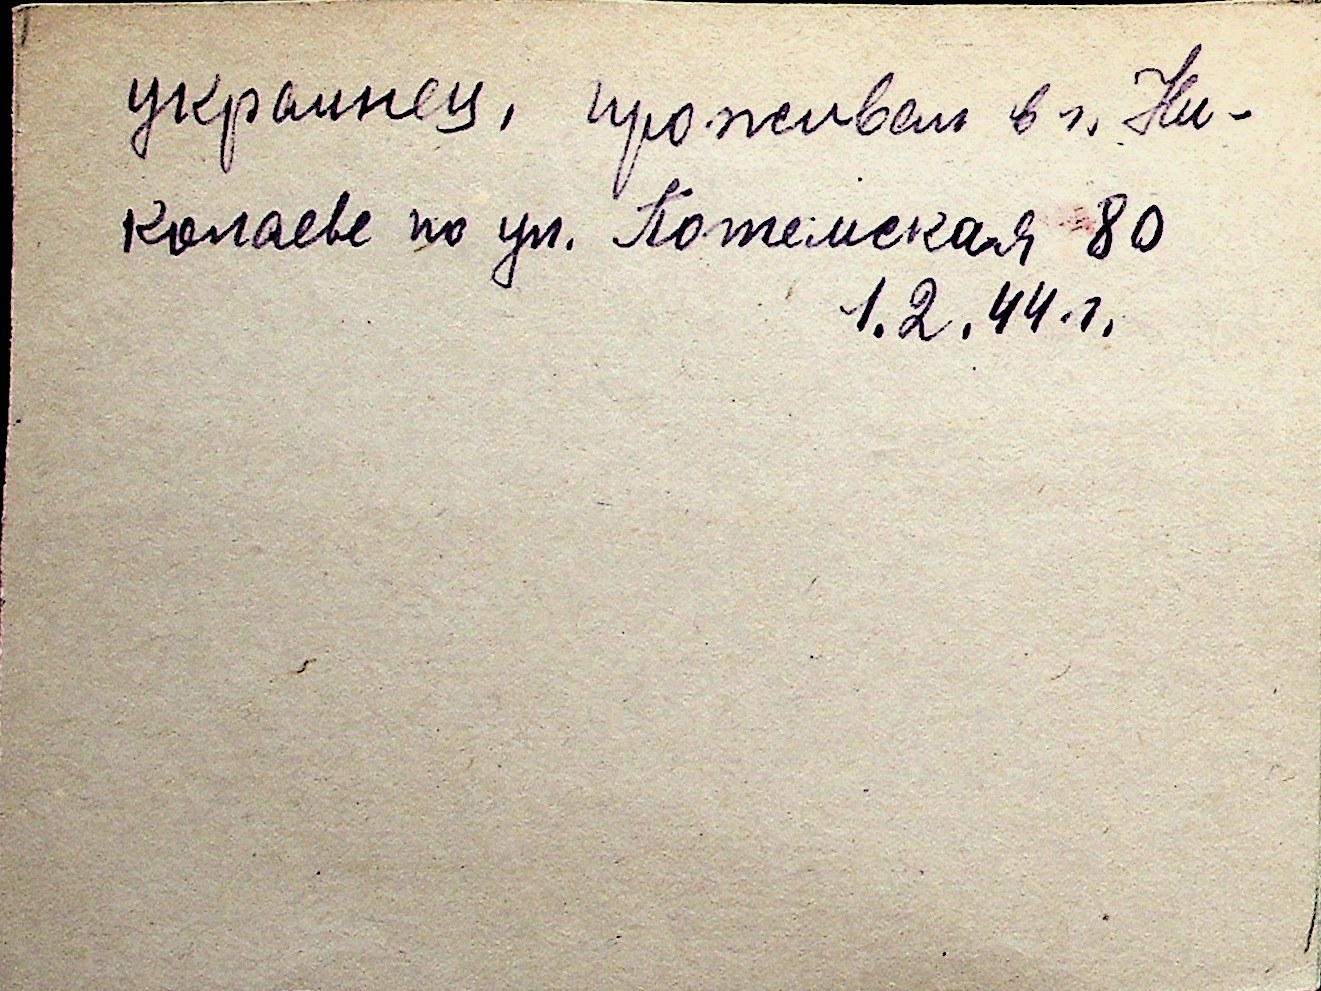 украинец, проживал в г. Ни-
колаеве по ул. Потемская 80
1.2.44 г.